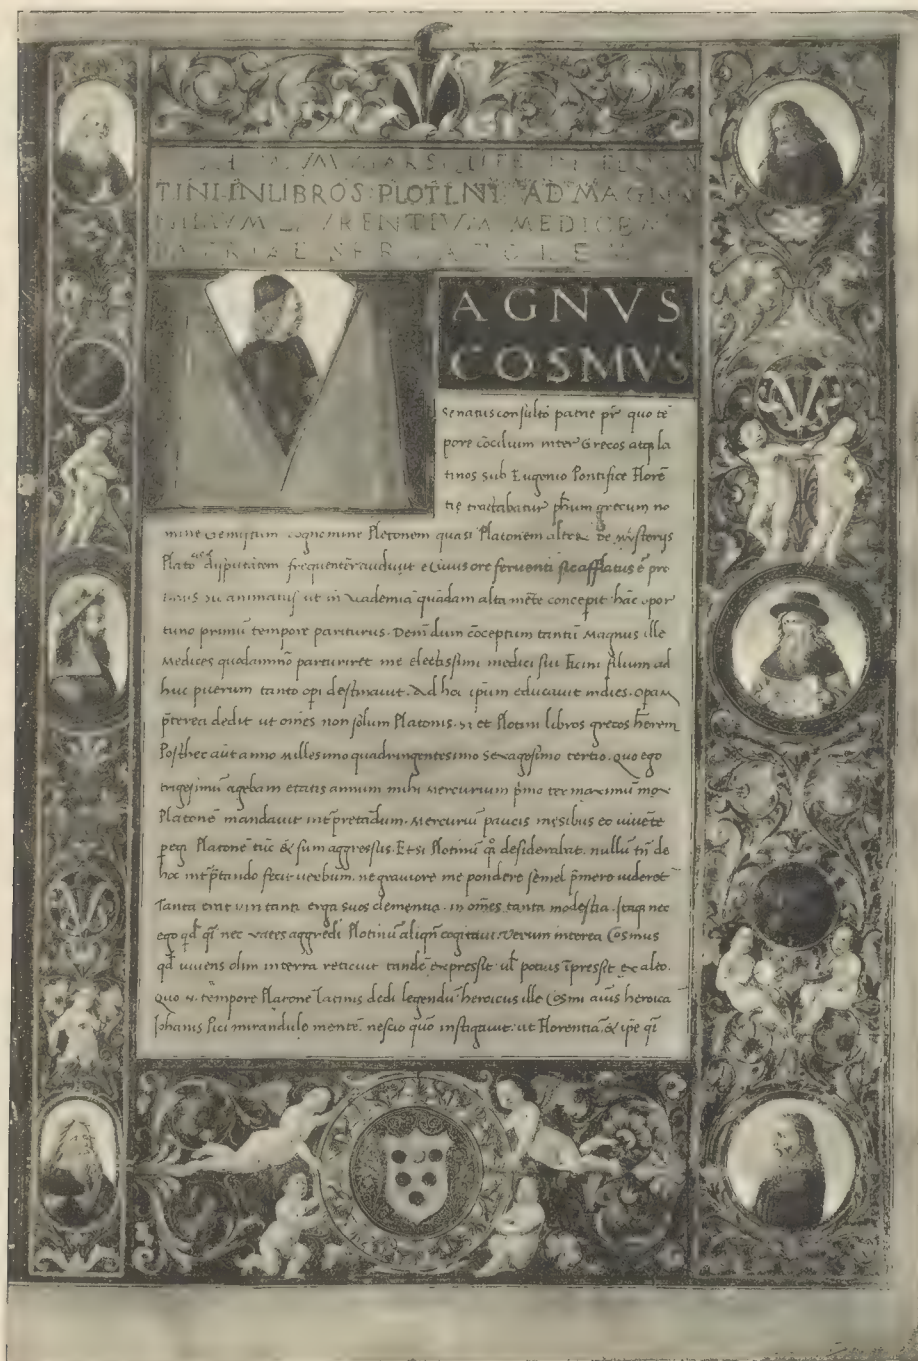 TINI·IN LIBROS·PLOTINI·AD MAGN
VRENTIVM MEDICE
AGNVS
COSMVS
Senatusconsulto patrie pr̄ quo tē
pore cōcilium inter Grecos atqȝ la
tinos sub Eugenio Pontifice Florē
tie tractabatur ph̄um grecum no
mine Gemistum cognomine Plethonem quasi Platonem alterȝ de mysterijs
Plato disputātem frequenter audiuit e cuius ore feruenti sic afflatus ē pro
animatus ut in Academiā quādam alta mēte conceperit hāc opor
tuno primū tempore pariturus. Deīn dum cōceptum tantū Magnus ille
Medices quodāmō parturiret me electissimi medici sui Ficini filium ad
huc puerum tanto opi destinauit. Ad hoc ip̄um educauit indies. Opam
p̄terea dedit ut om̄es non solum Platonis. et Plotini libros grecos h̄erem
Posthec aūt anno Millesimo quadringentesimo sexagesimo tertio. Quo ego
trigesimū agebam etatis annum mihi Mercurium p̄mo ter maximū mox
Platonē mandauit int̄pretādum. Mercuriū paucis mēsibus eo uiuēte
pegi Platonē tūc & sum aggressus. Etsi Plotinū qȝ desiderabat. nullū tn̄ de
hoc int̄ptando fecit uerbum. ne grauiore me pondere semel p̄mere uideret
Tanta erat uiri tanti erga suos clementia. in om̄es tanta modestia. Itaqȝ nec
ego qd̄ nec uates aggredi Plotinū aliqn̄ cogitaui. Verum interea Cosmus
qd̄ uiuens olim in terra reticuit tandē expressit ul̄ potius īpressit ex alto.
Quo tēpore Platonē latinis dedi legendū heroicus ille Cosmi aīus heroicā
Iohanis Pici mirandule mentē. nescio quō instigauit ut Florentiā & ip̄e qī